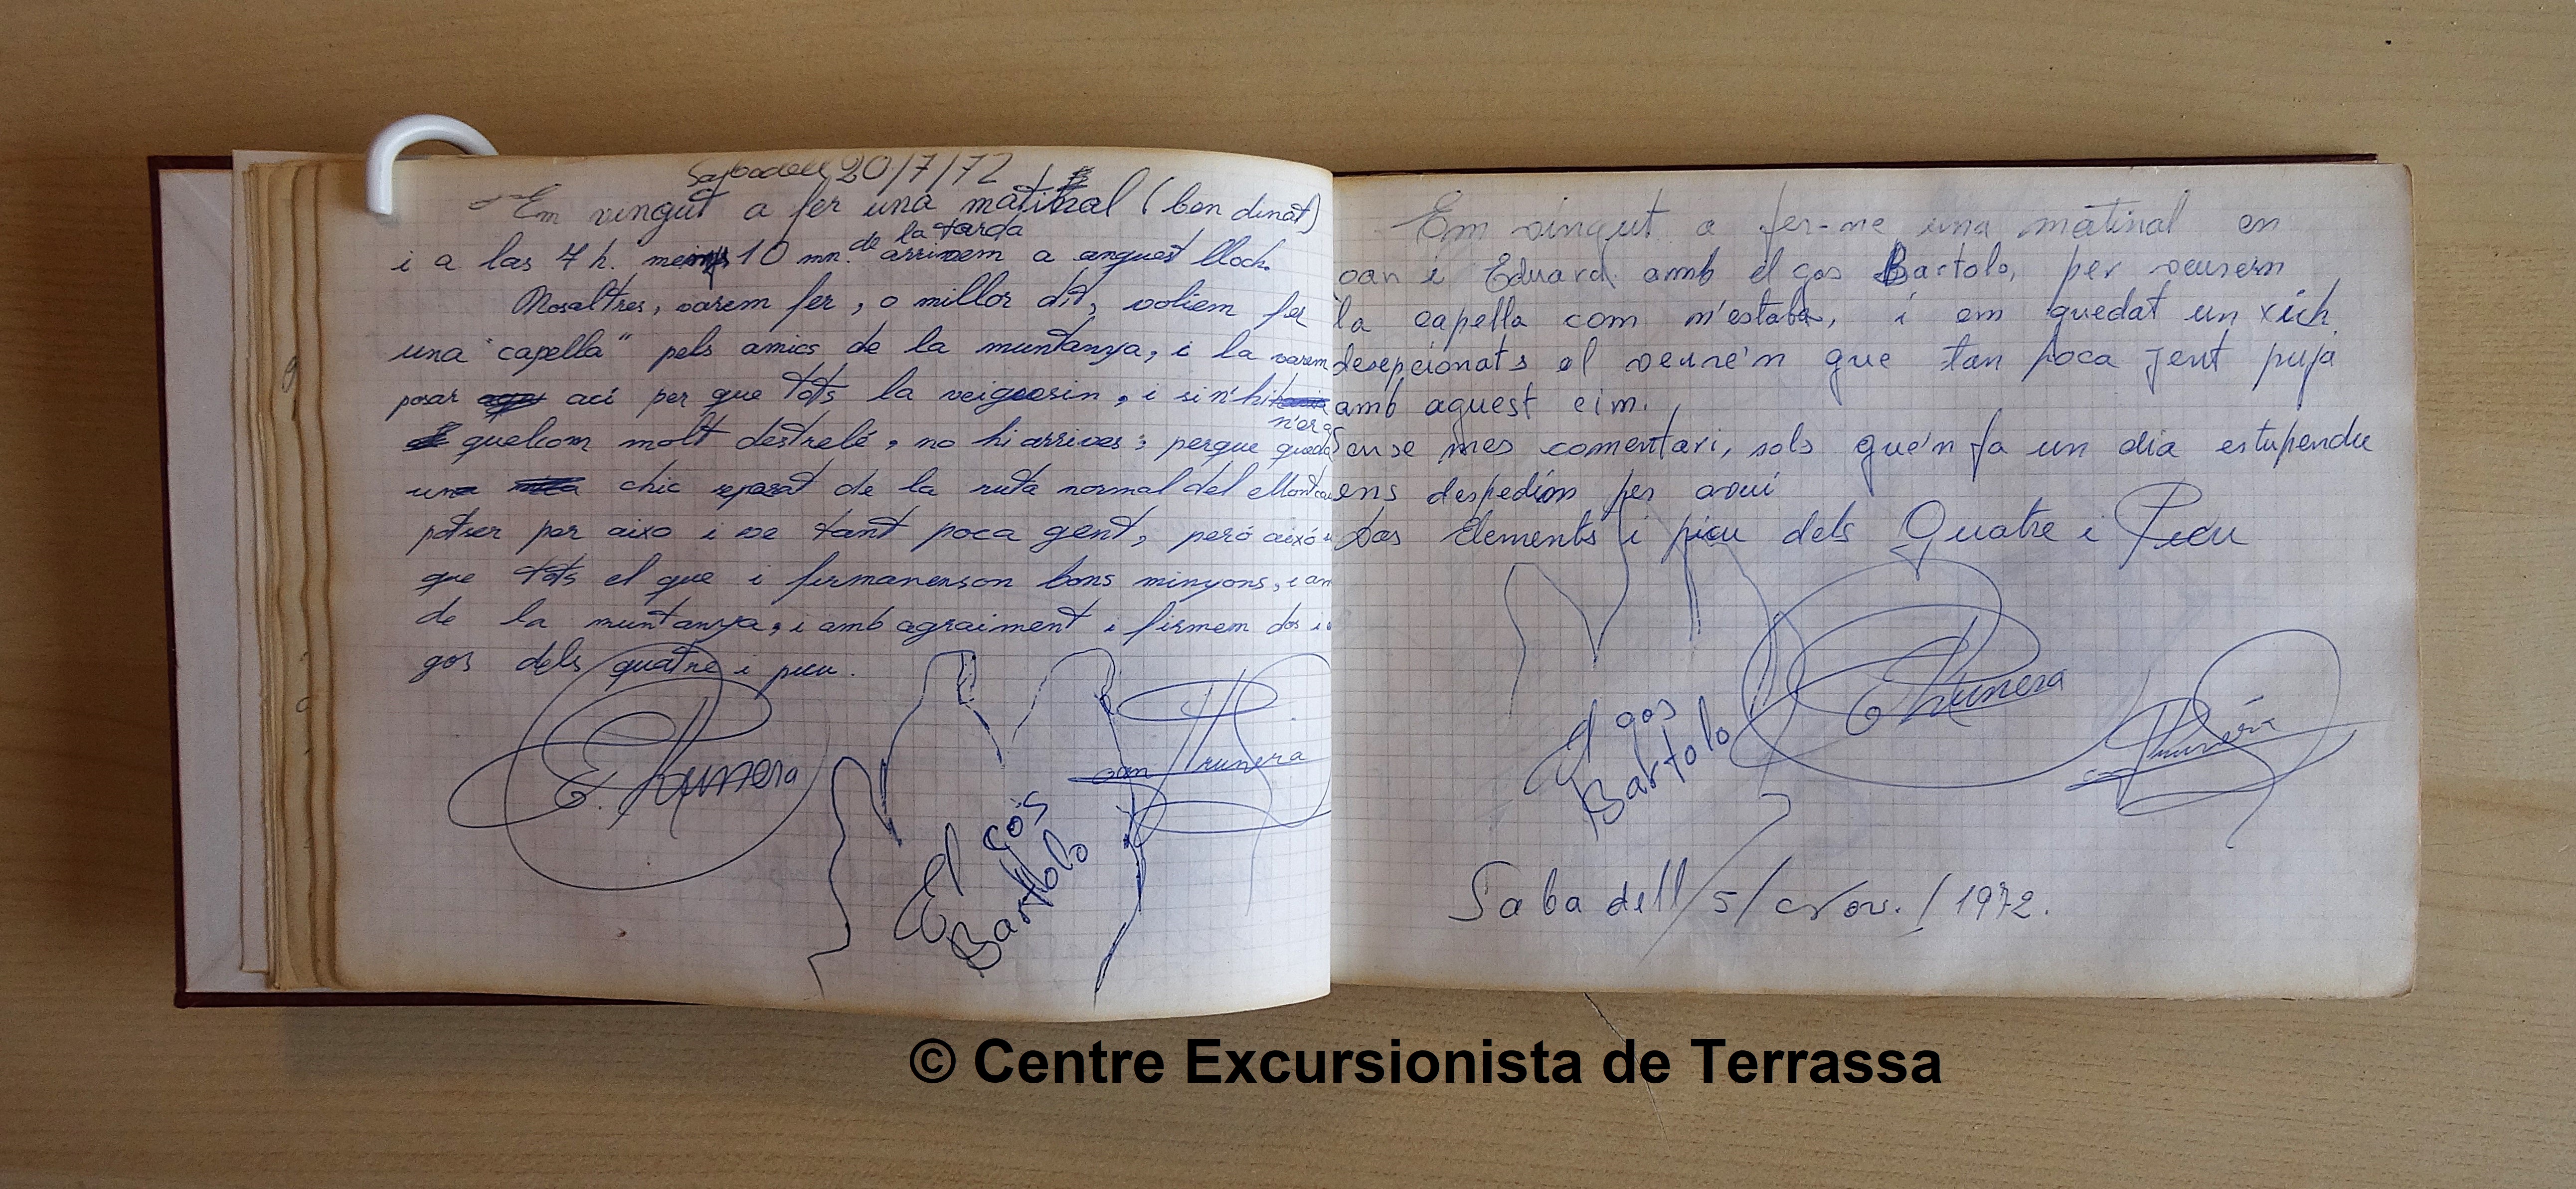 Sabadell 20/7/72
Em vingut a fer una matinal (ben dinat)
i a las 7 h. menys 10 mn. de la tarda arrivem a anguest lloch.
Nosaltres, varem fer, o millor dit, voliem fer
una "capella" pels amics de la muntanya, i la varem
posar aci per que tots la veiguesin, i si n'hi
n'era
quelcom molt destrelé, no hi arrives; perque queda
un chic separat de la ruta normal del Montcau
potser per aixo i ve tant poca gent, peró aixó
que tots el que i firmanenson bons minyons, i am
de la muntanya, i amb agraiment i firmem dos i
gos dels quatre i picu.
E. Prunera
Joan Prunera
El gos
Bartolo
Em vingut a fer-ne una matinal en
oan i Eduard amb el gos Bartolo, per veurern
la capella com m'estaba, i em quedat un xich
desepcionats al veure'n que tan poca jent puja
amb aquest cim.
Sense mes comentari, sols que'n fa un dia estupendu
ens despedim per aquí
Dos Elements i picu dels Quatre i Picu
El gos
Bartolo
E Prunera
Prunera
Sabadell / 5 / Nov. / 1972.
© Centre Excursionista de Terrassa